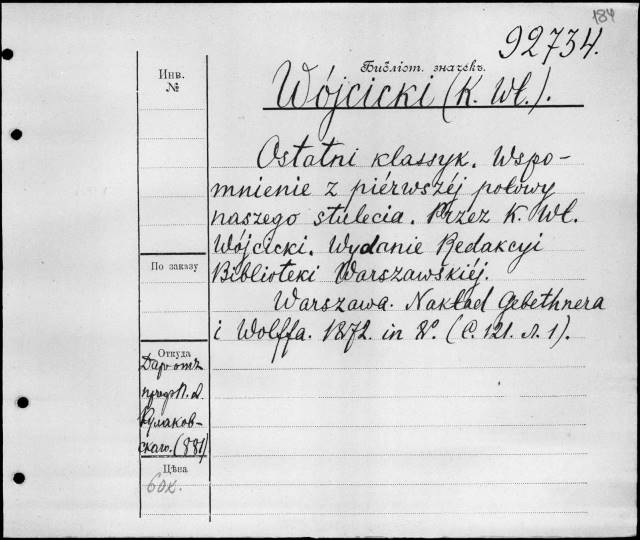 184
92734.
Библіот. значекъ.
Wójcicki (K. Wł.).
Инв.
№
Ostatni klassyk. Wspo-
mnienie z piérwszéj połowy
naszego stulecia. Przez K. Wł.
Wójcicki. Wydanie Redakcyi
Biblioteki Warszawskiéj.
Warszawa. Nakład Gebethnera
i Wolffa. 1872. in 8º. (С. 121. л. 1).
По заказу
Откуда
Даръ отъ
проф. П. А.
Кулаков-
скаго. (881)
Цѣна
60к.